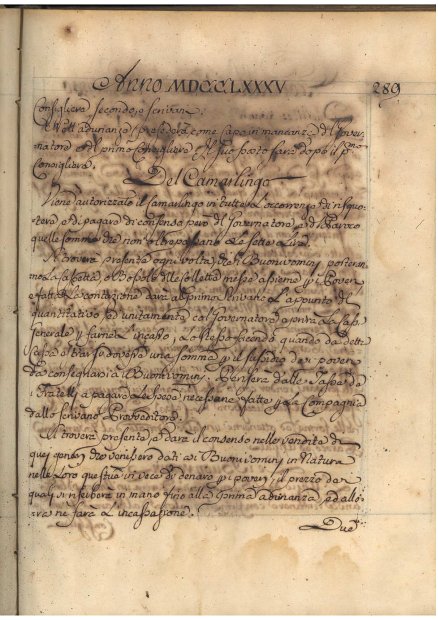 Anno MDCCCLXXXV 289
Consigliera secondo, e scrivan:
come capo in mancanza del Gover:
natore e del primo Consigliere, e il suo posto farà dopo il p:mo
Consigliere.
Del Camarlingo
Viene autorizzato il Camarlingo in tutte le occorrenze di risquo-
tere, e di pagare di consenso però del Governatore, e del Paroco
quelle somme che non oltrepassano le sette Lire.
Si doverà presente ogni volta che i Buonuomini porteran-
no la la Cassetta o Bossolo delle Collette messe assieme p i Poveri
e fatta la contazione darà al primo Scrivano l'appunto del
quantitativo ed unitamente col Governatore aprirà la Cassa
Generale p farne l'incasso, e lo stesso facendo quando da detta
Cassa trarsi doverà una somma p il sussidio dei poveri
da consegnarsi ai Buonuomini. Penserà dalle Tasse de
i Fratelli a pagare le spese necessarie fatte p la Compagnia
dallo Scrivano Provveditore.
Si troverà presente, e darà il consenso nelle vendite di
quei generi che venissero dati ai Buonuomini in natura
nelle Loro questue in vece di denaro p i poveri, il prezzo dei
quali si riscuterà in mano fino alla prima adunanza, e dallo-
ra ne farà l'incassazione.
Due